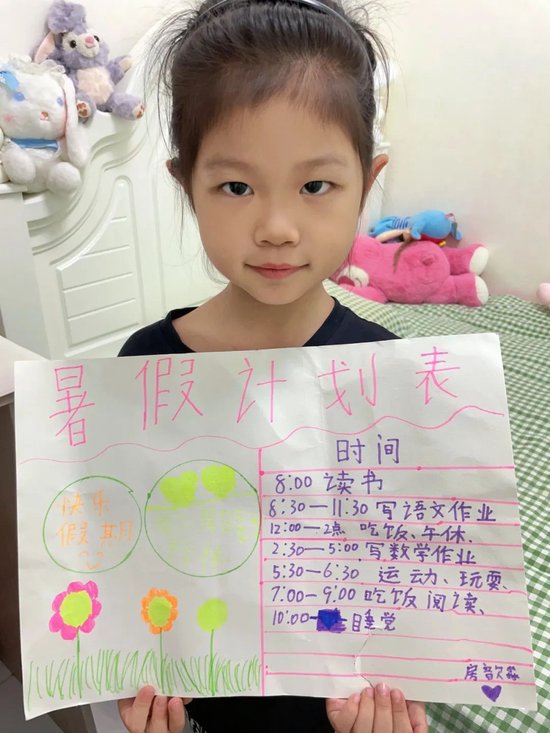 暑假计划表
快乐
假期
时间
8:00 读书
8:30—11:30 写语文作业
12:00—2点 吃饭、午休.
2:30—5:00 写数学作业
5:30—6:30 运动、玩耍、
7:00—9:00 吃饭阅读、
10:00— 睡觉